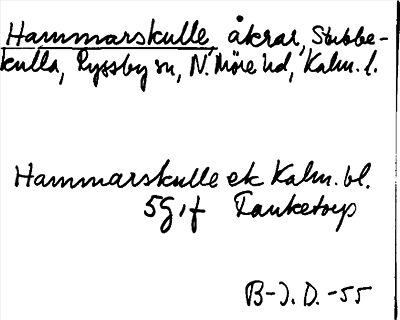 Hammarskulle, åkrar, Stubbe-
kulla, Ryssby sn, N. Möre hd, Kalm. l.
Hammarskulle ek Kalm. bl.
5G, f Tanketorp
B-J. D. -55